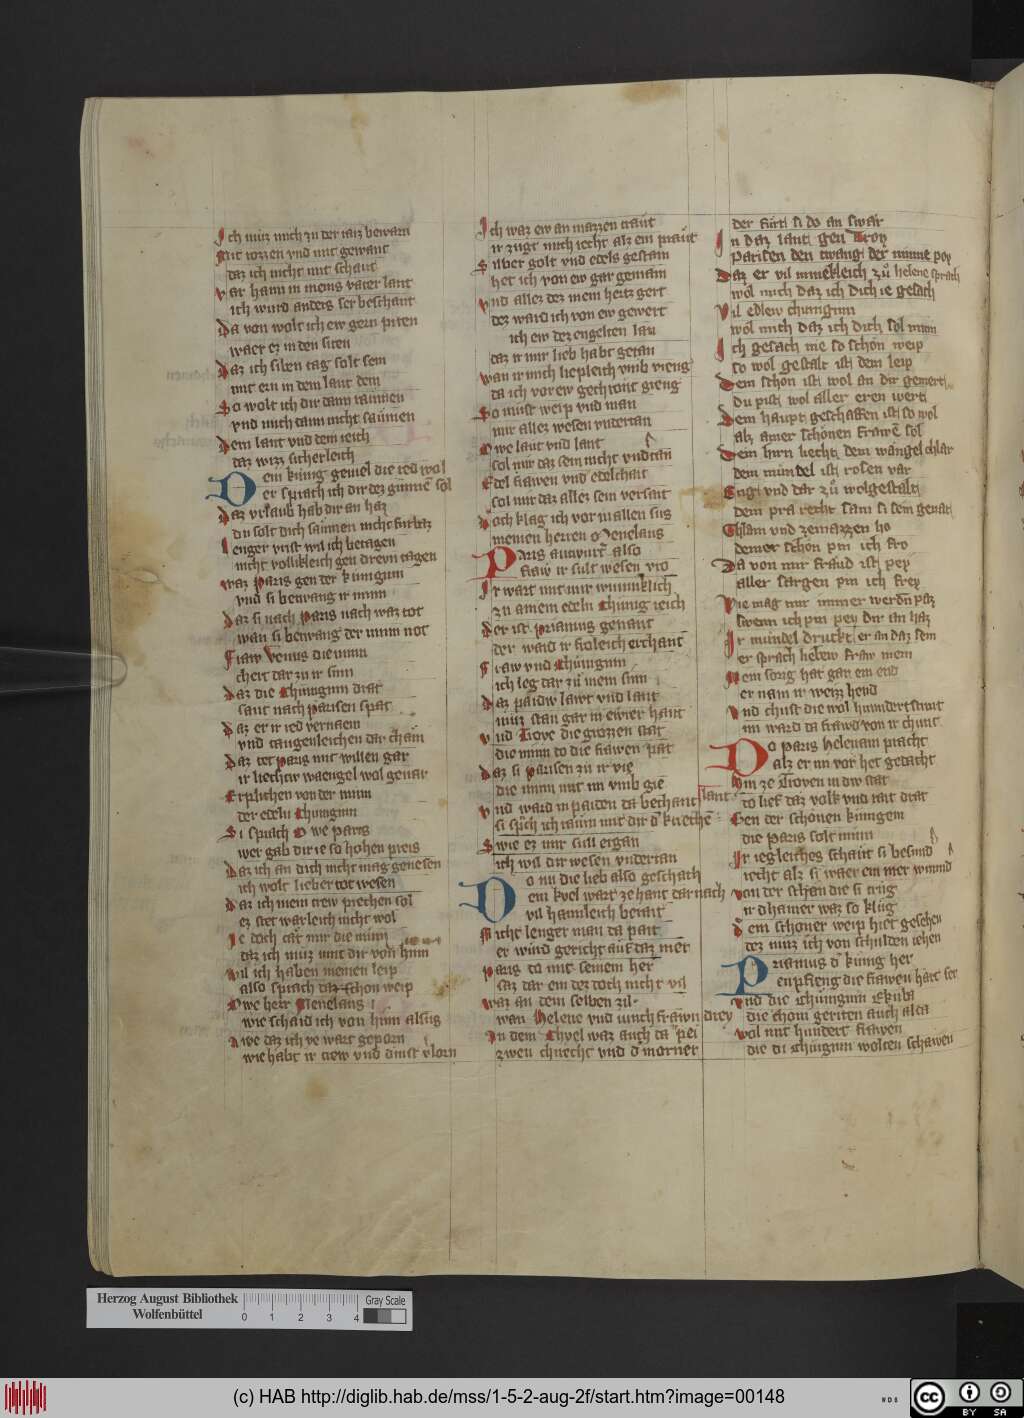 Ich muz mich zu der raiz bewarn
Mit rozzen vnd mit gewant
daz ich nicht mit schant
Var hain in meins vater lant
ich wurd anders ser beschant
Da von wolt ich ew gern piten
waer ez in den siten
Daz ich siben tag solt sein
mit ern in dem lant dein
So wolt ich dir dann raumen
vnd mich dann nicht saumen
Dein lant vnd dein reich
daz wizz sicherleich
Dem kunig geuiel die red wol
er sprach ich dir dez gunnen sol
Daz vrlaub hab dir an haz
du solt dich saumen nicht furbaz
Lenger vrist wil ich betagen
nicht vollikleich gen drein tagen
Waz Paris gen der kuniginn
vnd si bewang ir minn
Daz si nach Paris nach waz tot
wan si bewang der minn not
Fraw Venus die minn
chert dar zu ir sinn
Daz die Chunginn drat
sant nach Parisen spat
Daz er ir red vernaem
vnd taugenleichen dar chäm
Daz tet Paris mit willen gar
ir liechtew waengel wol geuar
Erplichen von der minn
der edeln Chunginn
Si sprach O we Paris
wer gab dir ie so hohen preis
Daz ich an dich nicht mag genesen
ich wolt lieber tot wesen
Daz ich mein trew prechen sol
ez stet warleich nicht wol
Ie doch rat mir die minn
daz ich muz mit dir von hinn
Wil ich haben meinen leip
also sprach daz schon weip
O we herr Menelaus
wie schaid ich von hinn alsus
Awe daz ich ye wart geporn
wie habt ir trew vnd dinst vlorn
Ich waz ew an mazzen traut
ir zugt mich recht alz ein praut
Silber golt vnd edels gestain
het ich von ew gar gemain
Vnd allez dez mein hertz gert
dez ward ich von ew gewert
ich ew dez engelten lan
daz ir mir lieb habt getan
Wan ir mich liepleich vmb vieng
da ich vor ew gechrönt gieng
So must weip vnd man
mir allez wesen vndertan
Owe laut vnd lant
sol mir daz sein nicht vndtan
Edel frawen vnd edelchait
sol mir daz allez sein versait
Doch klag ich vor in allen sus
meinen herren Menelaus
Paris antwurt also
fraw ir sult wesen vro
Ir wart mit mir wunniklich
zu ainem edeln Chunig reich
Der ist Priamus genant
der ward ir froleich erchant
Fraw vnd Chunginn
ich leg dar zu mein sinn
Daz paidw lawt vnd lant
muz stan gar in ewrer hant
Vnd Troye die grozzen stat
die minn do die frawen pat
Daz si Parisen zu ir vie
die minn mit im vmb gie
Vnd ward in paiden da bechant
si sprch ich raum mit dir d kriechen lant
Swie ez mir sull ergan
ich wil dir wesen vndertan
Do nu die lieb also geschach
ein kyel wart ze hant dar nach
vil haimleich berait
Nicht lenger man da pait
er wurd gericht auf daz mer
Paris do mit seinem her
saz dar ein dez doch nicht vil
Waz an dem selben zil
wan Helene vnd iunchfrawn drey
In dem Chyel waz auch da pei
zwen chnecht vnd d morner
der furt si do an swar
In daz lant gen Troy
Parisen den twang der minne poy
Daz er vil minnekleich zu helene sprach
wol mich daz ich dich ie gesach
Vil edlew chunginn
wol mich daz ich dich sol minn
Ich gesach nie so schon weip
so wol gestalt ist dem leip
Dem schon ist wol an dir gemert
du pist wol aller eren wert
Dein haupt geschaffen ist so wol
alz ainer schönen frawen sol
Dein hirn liecht dein wängel chlar
dein mündel ist rosen var
Eng vnd dar zu wolgestalt
dein pra recht sam si sein gemat
Chlain vnd zemazzen ho
deiner schön pin ich fro
Da von mir fraud ist pey
aller sargen pin ich frey
Wie mag mir immer werdn paz
swenn ich pin pey dir an haz
Ir mündel druckt er an daz sein
er sprach liebew fraw mein
Mein sorg hat gar ein end
er nam ir weizz hend
Vnd chust die wol hundertstunt
im ward da frawd von ir chunt
Do Paris helenam pracht
alz er im vor het gedacht
Hin ze Troyen in dw stat
do lief daz volk vnd rait drat
Gen der schonen kunigein
die Paris solt minn
Ir iegleiches schaut si besund
recht alz si waer ein mer wund
Von der schon die si trug
ir dhainer waz so klug
Dem schoner weip hiet gesehen
dez muz ich von schulden iehen
Priamus d kunig her
enpfieng die frawen hart ser
Vnd die Chunginn Ekuba
die chom geriten auch alda
Wol mit hundert frawen
die di Chunginn wolten schawen
Herzog August Bibliothek
Wolfenbüttel
0 1 2 3 4
Gray Scale
(c) HAB http://diglib.hab.de/mss/1-5-2-aug-2f/start.htm?image=00148
WDB
cc BY SA